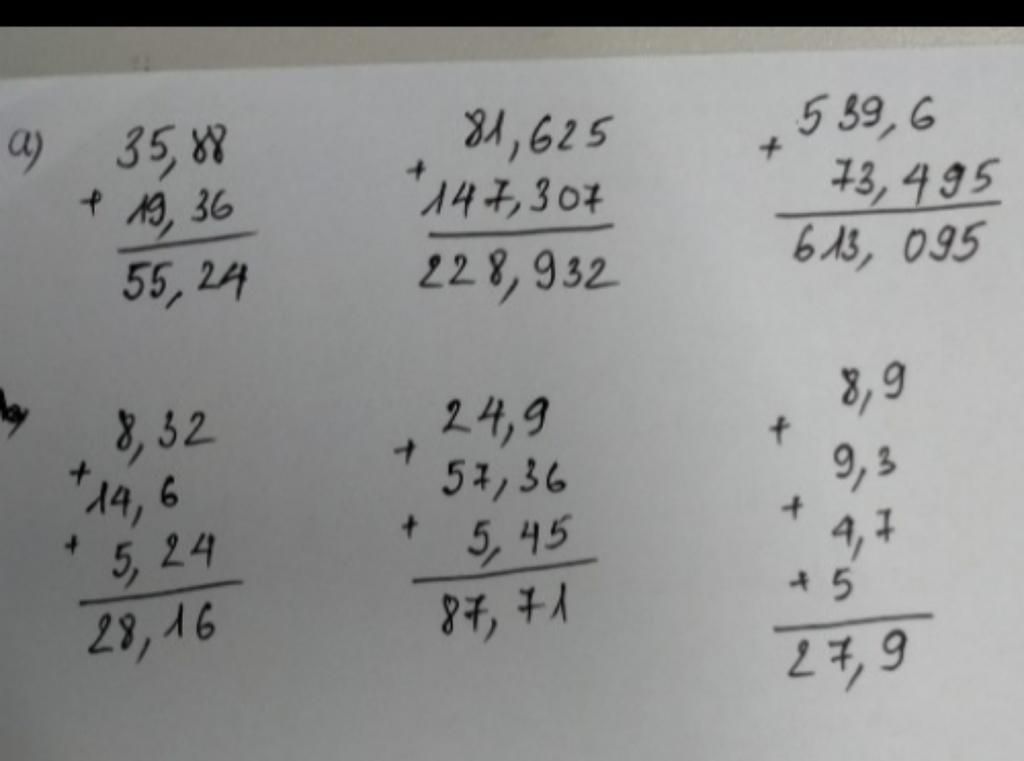 a)
35,88
+ 19,36
55,24
81,625
+ 147,307
228,932
539,6
+ 73,495
613,095
b)
8,32
+ 14,6
+ 5,24
28,16
24,9
+ 57,36
+ 5,45
87,71
8,9
+ 9,3
+ 4,7
+ 5
27,9